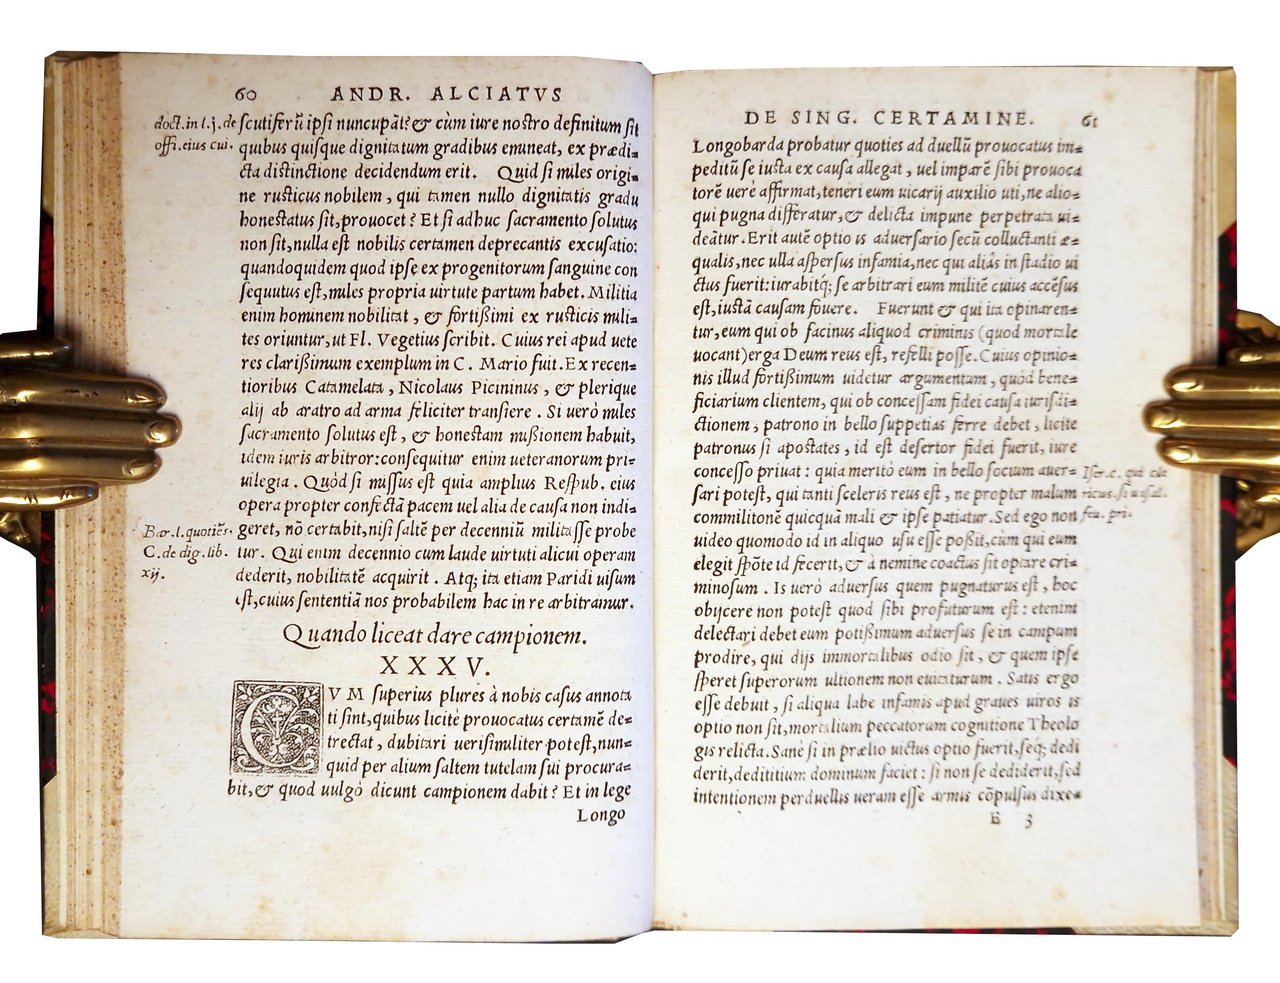 60 ANDR. ALCIATVS
doct. in l. j. de
offi. eius cui.
scutiferũ ipsi nuncupãt? & cùm iure nostro definitum sit
quibus quisque dignitatum gradibus emuneat, ex prædi-
cta distinctione decidendum erit. Quid si miles origi-
ne rusticus nobilem, qui tamen nullo dignitatis gradu
honestatus sit, prouocet? Et si adhuc sacramento solutus
non sit, nulla est nobilis certamen deprecantis excusatio:
quandoquidem quod ipse ex progenitorum sanguine con
sequutus est, miles propria uirtute partum habet. Militia
enim hominem nobilitat, & fortißimi ex rusticis mili-
tes oriuntur, ut Fl. Vegetius scribit. Cuius rei apud uete
res clarißimum exemplum in C. Mario fuit. Ex recen-
tioribus Catamelata, Nicolaus Picininus, & plerique
alij ab aratro ad arma feliciter transiere. Si uerò miles
sacramento solutus est, & honestam mißionem habuit,
idem iuris arbitror: consequitur enim ueteranorum pri-
uilegia. Quòd si missus est quia amplius Respub. eius
opera propter confectã pacem uel alia de causa non indi-
geret, nõ certabit, nisi saltẽ per decenniũ militasse probe
tur. Qui enim decennio cum laude uirtuti alicui operam
dederit, nobilitatẽ acquirit. Atq; ita etiam Paridi uisum
est, cuius sententiã nos probabilem hac in re arbitramur.
Bar. l. quoties.
C. de dig. lib.
xij.
Quando liceat dare campionem.
XXXV.
CVM superius plures à nobis casus annota
ti sint, quibus licitè prouocatus certamẽ de-
trectat, dubitari uerisimiliter potest, nun-
quid per alium saltem tutelam sui procura-
bit, & quod uulgò dicunt campionem dabit? Et in lege
Longo
DE SING. CERTAMINE. 61
Longobarda probatur quoties ad duellũ prouocatus im-
peditũ se iusta ex causa allegat, uel imparẽ sibi prouoca
torẽ uerè affirmat, teneri eum uicarij auxilio uti, ne alio-
qui pugna differatur, & delicta impune perpetrata ui-
deãtur. Erit autẽ optio is aduersario secũ colluctanti æ-
qualis, nec ulla aspersus infamia, nec qui aliàs in stadio ui
ctus fuerit: iurabitq́; se arbitrari eum militẽ cuius accẽsus
est, iustã causam fouere. Fuerunt & qui ita opinaren-
tur, eum qui ob facinus aliquod criminis (quod mortale
uocant) erga Deum reus est, refelli posse. Cuius opinio-
nis illud fortißimum uidetur argumentum, quòd bene-
ficiarium clientem, qui ob concessam fidei causa iurisdi-
ctionem, patrono in bello suppetias ferre debet, licitè
patronus si apostates, id est desertor fidei fuerit, iure
concesso priuat: quia meritò eum in bello socium auer-
sari potest, qui tanti sceleris reus est, ne propter malum
commilitonẽ quicquã mali & ipse patiatur. Sed ego non
uideo quomodo id in aliquo usu esse poßit, cùm qui eum
elegit spõte id fecerit, & à nemine coactus sit optare cri-
minosum. Is uerò aduersus quem pugnaturus est, hoc
obijcere non potest quod sibi profuturum est: etenim
delectari debet eum potißimum aduersus se in campum
prodire, qui dijs immortalibus odio sit, & quem ipse
speret superorum ultionem non euitaturum. Satis ergo
esse debuit, si aliqua labe infamis apud graues uiros is
optio non sit, mortalium peccatorum cognitione Theolo
gis relicta. Sanè si in prælio uictus optio fuerit, seq; dedi
derit, dedititium dominum faciet: si non se dediderit, sed
intentionem perduellis ueram esse armis cõpulsus dixe-
E 3